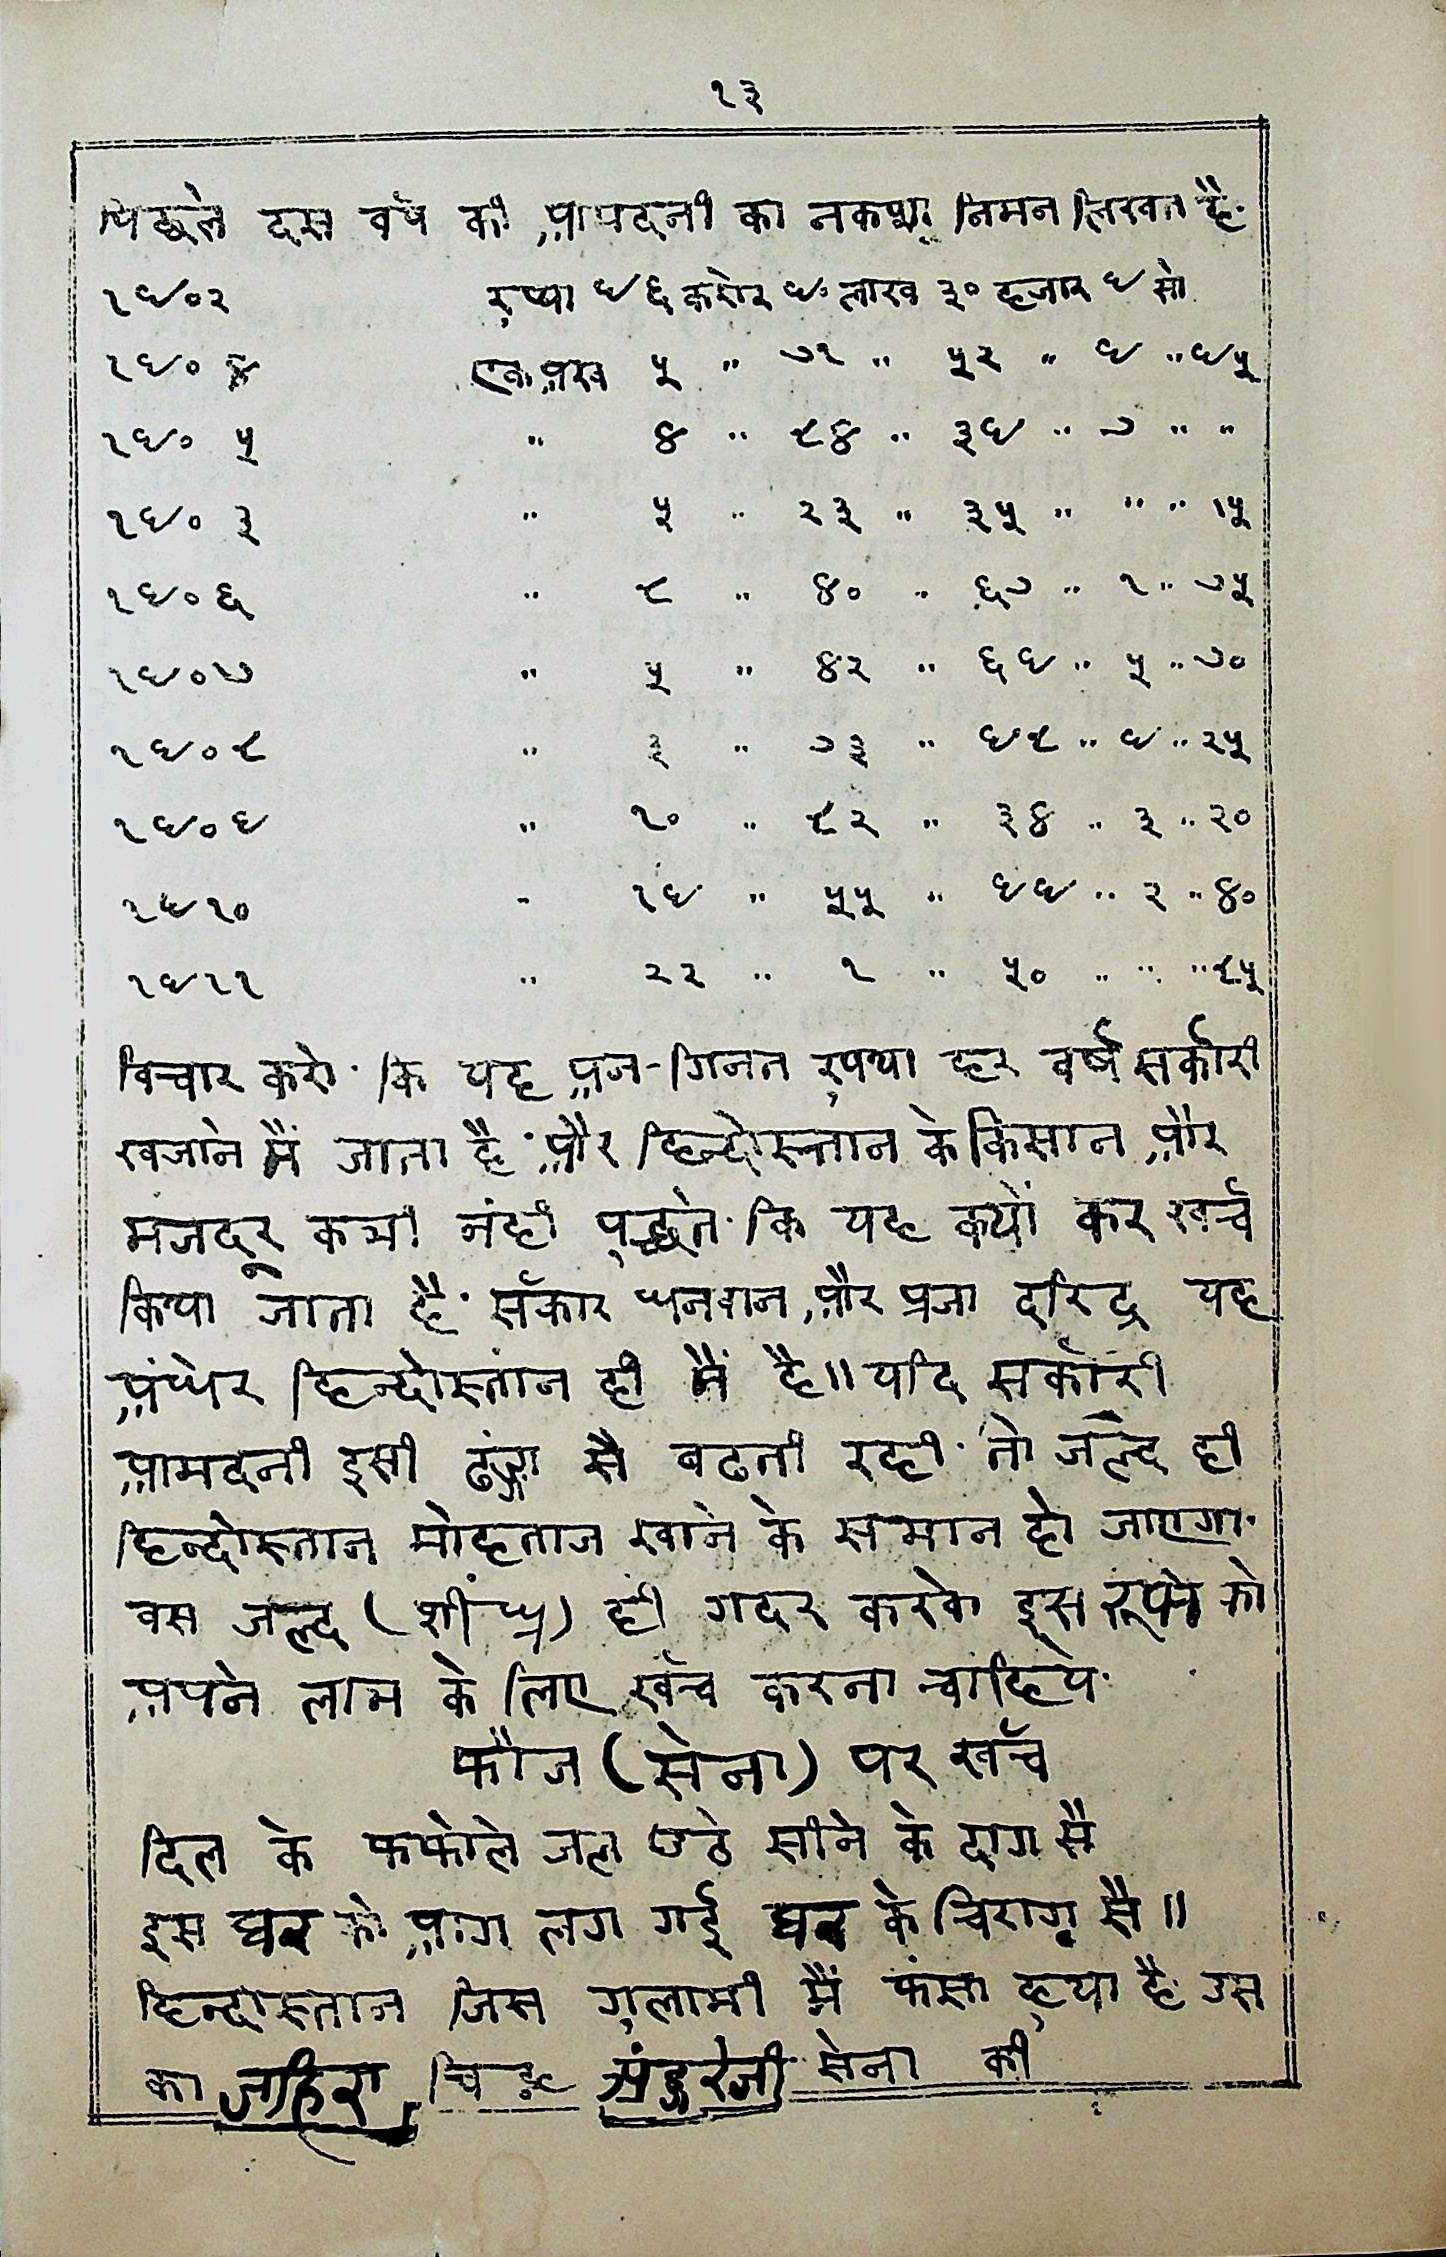 १३
पिछले दस वर्ष की आमदनी का नकशा निमन लिखत है.
१९०२ रुप्या ९६ करोर ९० लाख ३० हजार ९ सो
१९० ४ एक अरब ५ " ७१ " ५२ " ९ " ९५
१९० ५ " ४ " ८४ " ३९ " ७ " "
१९० ३ " ५ " २३ " ३५ " " " १५
१९०६ " ८ " ४० " ६७ " १ " ७५
१९०७ " ५ " ४२ " ६९ " ५ " ७०
१९०८ " ३ " ७३ " ९८ " ९ " २५
१९०९ " १० " ८२ " ३४ " ३ " २०
१९१० " १९ " ५५ " ९९ " २ " ४०
१९११ " २२ " १ " ५० " " " ८५
विचार करो. कि यह अन-गिनत रुपया हर वर्ष सर्कारी
खजाने मैं जाता है. और हिन्दोस्तान के किसान और
मजदूर कभी नंही पूछते. कि यह क्यों कर खर्च
किया जाता है. सर्कार धनवान और प्रजा दरिद्र यह
अंधेर हिन्दोस्तान ही मैं है॥ यदि सर्कारी
आमदनी इसी ढंग सै बढती रही. तो जल्द ही
हिन्दोस्तान मोहताज खाने के समान हो जाएगा.
वस जल्द (शीघ्र) ही गदर करके इस रूपये को
अपने लाभ के लिए खर्च करना चाहिये.
फौज (सेना) पर खर्च
दिल के फफोले जल उठे सीने के दाग सै
इस घर को आग लग गई घर के चिराग सै॥
हिन्दोस्तान जिस गुलामी मैं फंसा हुया है. उस
का जाहिरा चिन्ह अंङ्गरेजी सेना की